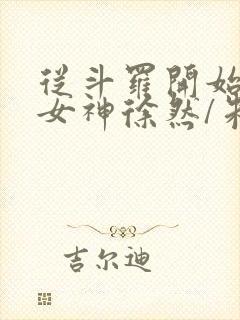 從斗羅開始
女神徐然/
吉尔迪